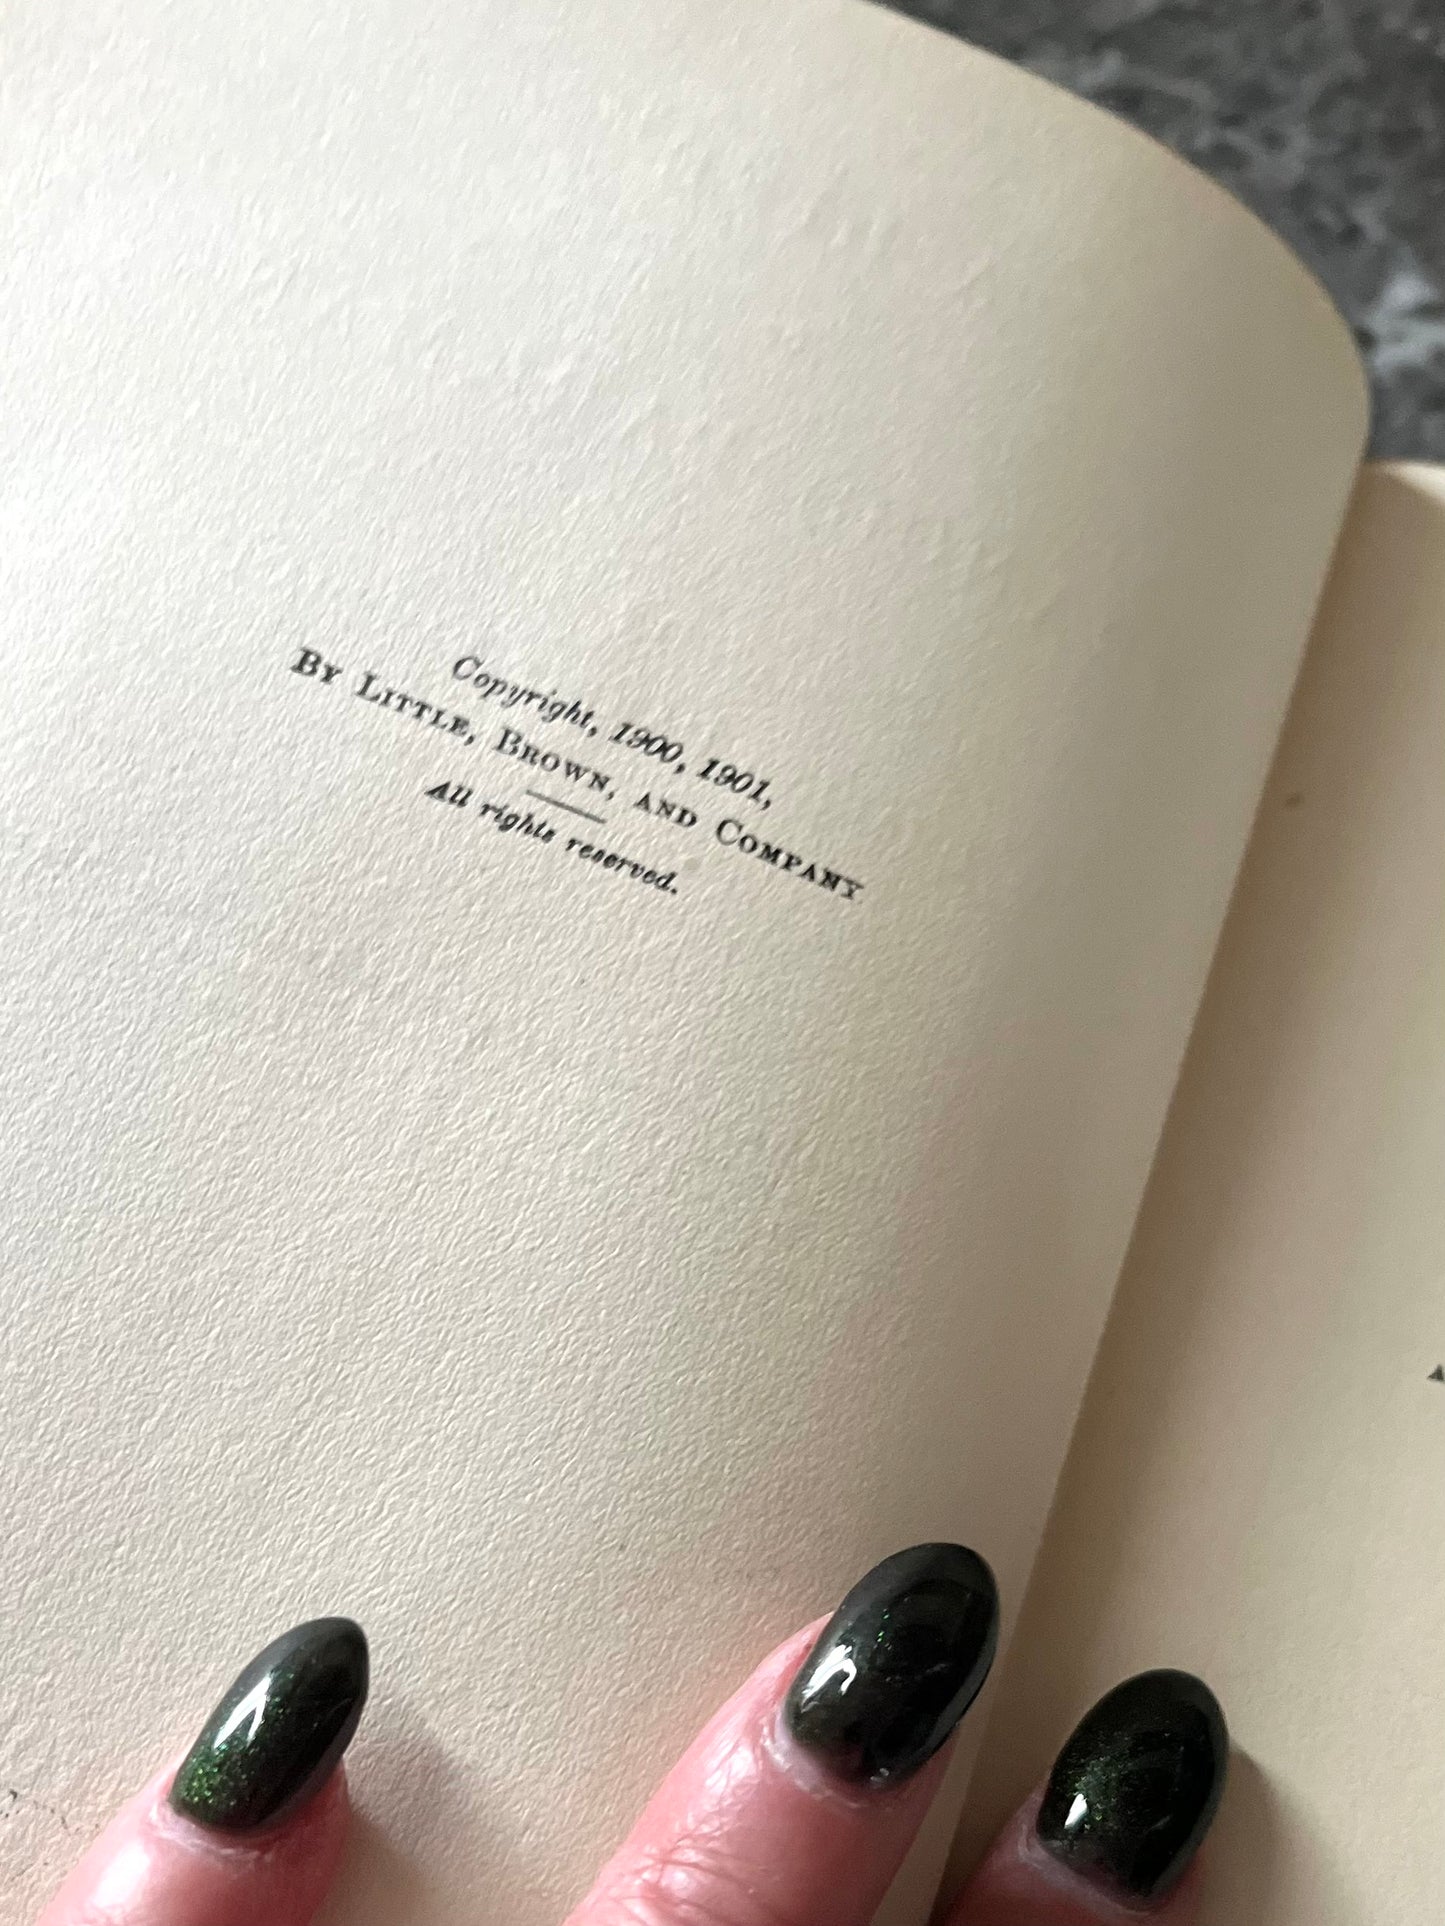 Copyright, 1900, 1901,
By Little, Brown, and Company
All rights reserved.